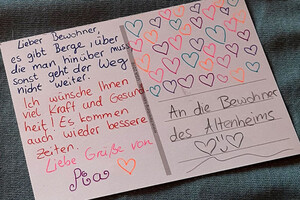 Lieber Bewohner,
es gibt Berge, über
die man hinüber muss
sonst geht der Weg
nicht weiter.
Ich wünsche Ihnen
viel Kraft und Gesund
heit! Es kommen
auch wieder bessere
Zeiten.
Liebe Grüße von
Pia
An die Bewohner
des Altenheims